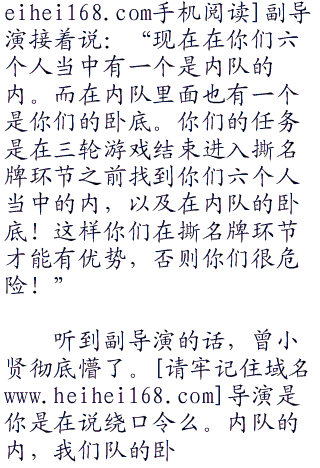 eihei168.com手机阅读]副导
演接着说：“现在在你们六
个人当中有一个是内队的
内。而在内队里面也有一个
是你们的卧底。你们的任务
是在三轮游戏结束进入撕名
牌环节之前找到你们六个人
当中的内，以及在内队的卧
底！这样你们在撕名牌环节
才能有优势，否则你们很危
险！”
听到副导演的话，曾小
贤彻底懵了。[请牢记住域名
www.heihei168.com]导演是
你是在说绕口令么。内队的
内，我们队的卧